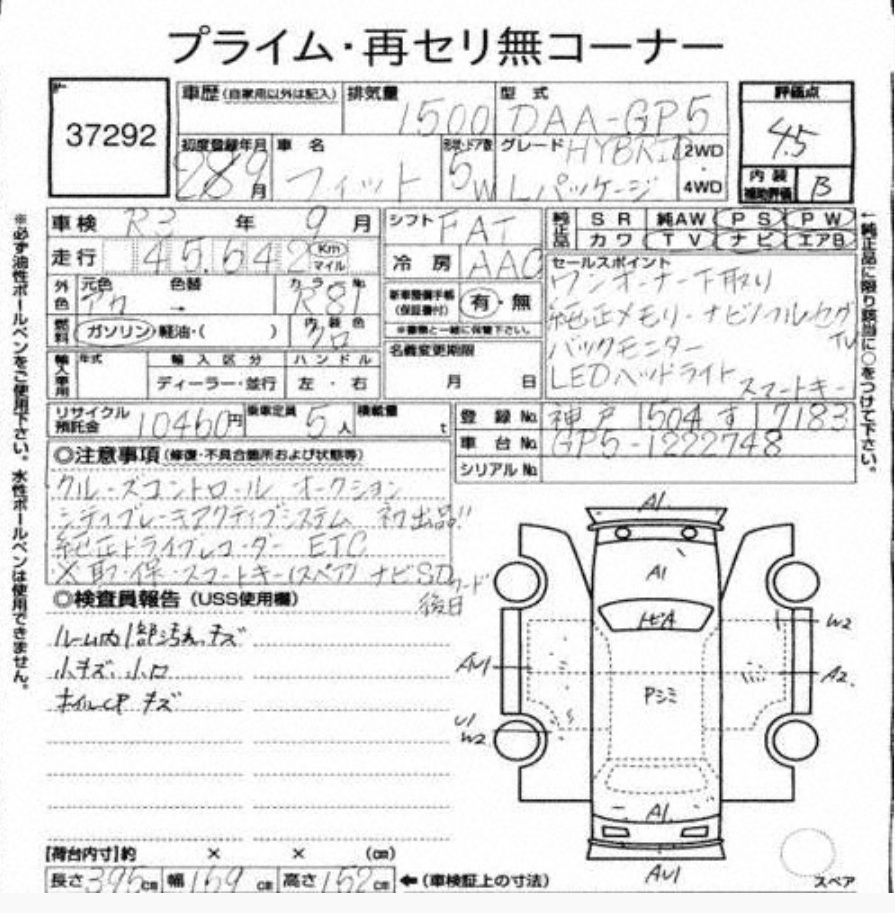 プライム・再セリ無コーナー
37292
車歴(自家用以外は記入) 排気量 1500 型式 DAA-GP5
評価点 4.5
初度登録年月 28 9月 車名 フィット 形状・ドア数 5W グレード HYBRID Lパッケージ 2WD・4WD
内装補助評価 B
車検 R3年 9月 シフト FAT
純正品 SR 純AW PS PW
カワ TV ナビ エアB
走行 45,642 Km マイル 冷房 AAC
セールスポイント
ワンオーナー下取り
純正メモリーナビ/フルセグTV
バックモニター
LEDヘッドライト スマートキー
外色 元色 アカ 色替 → カラーNo R81
新車整備手帳(保証書付) 有・無
※書類と一緒に保管下さい。
燃料 ガソリン・軽油・( ) 内装色 クロ
名義変更期限 月 日
輸入車用 年式 輸入区分 ハンドル
ディーラー・並行 左・右
リサイクル預託金 10460円 乗車定員 5人 積載量 t
登録No. 神戸 504 す 7183
車台No. GP5-1222748
シリアルNo.
◎注意事項(修復・不具合箇所および状態等)
クルーズコントロール オークション
シティブレーキアクティブシステム 初出品!!
純正ドライブレコーダー ETC
※取・保・スマートキー(スペア) ナビSDカード
後日
◎検査員報告(USS使用欄)
ルーム内1部汚れ、キズ
小キズ、小凹
ホイールCP キズ
A1
A1
トビA
W2
AU1
A2
Pシミ
U1
W2
A1
AU1
スペア
[荷台内寸]約 × × (cm)
長さ 395cm 幅 169cm 高さ 152cm ←(車検証上の寸法)
※必ず油性ボールペンをご使用下さい。水性ボールペンは使用できません。
←純正品に限り該当に○をつけて下さい。